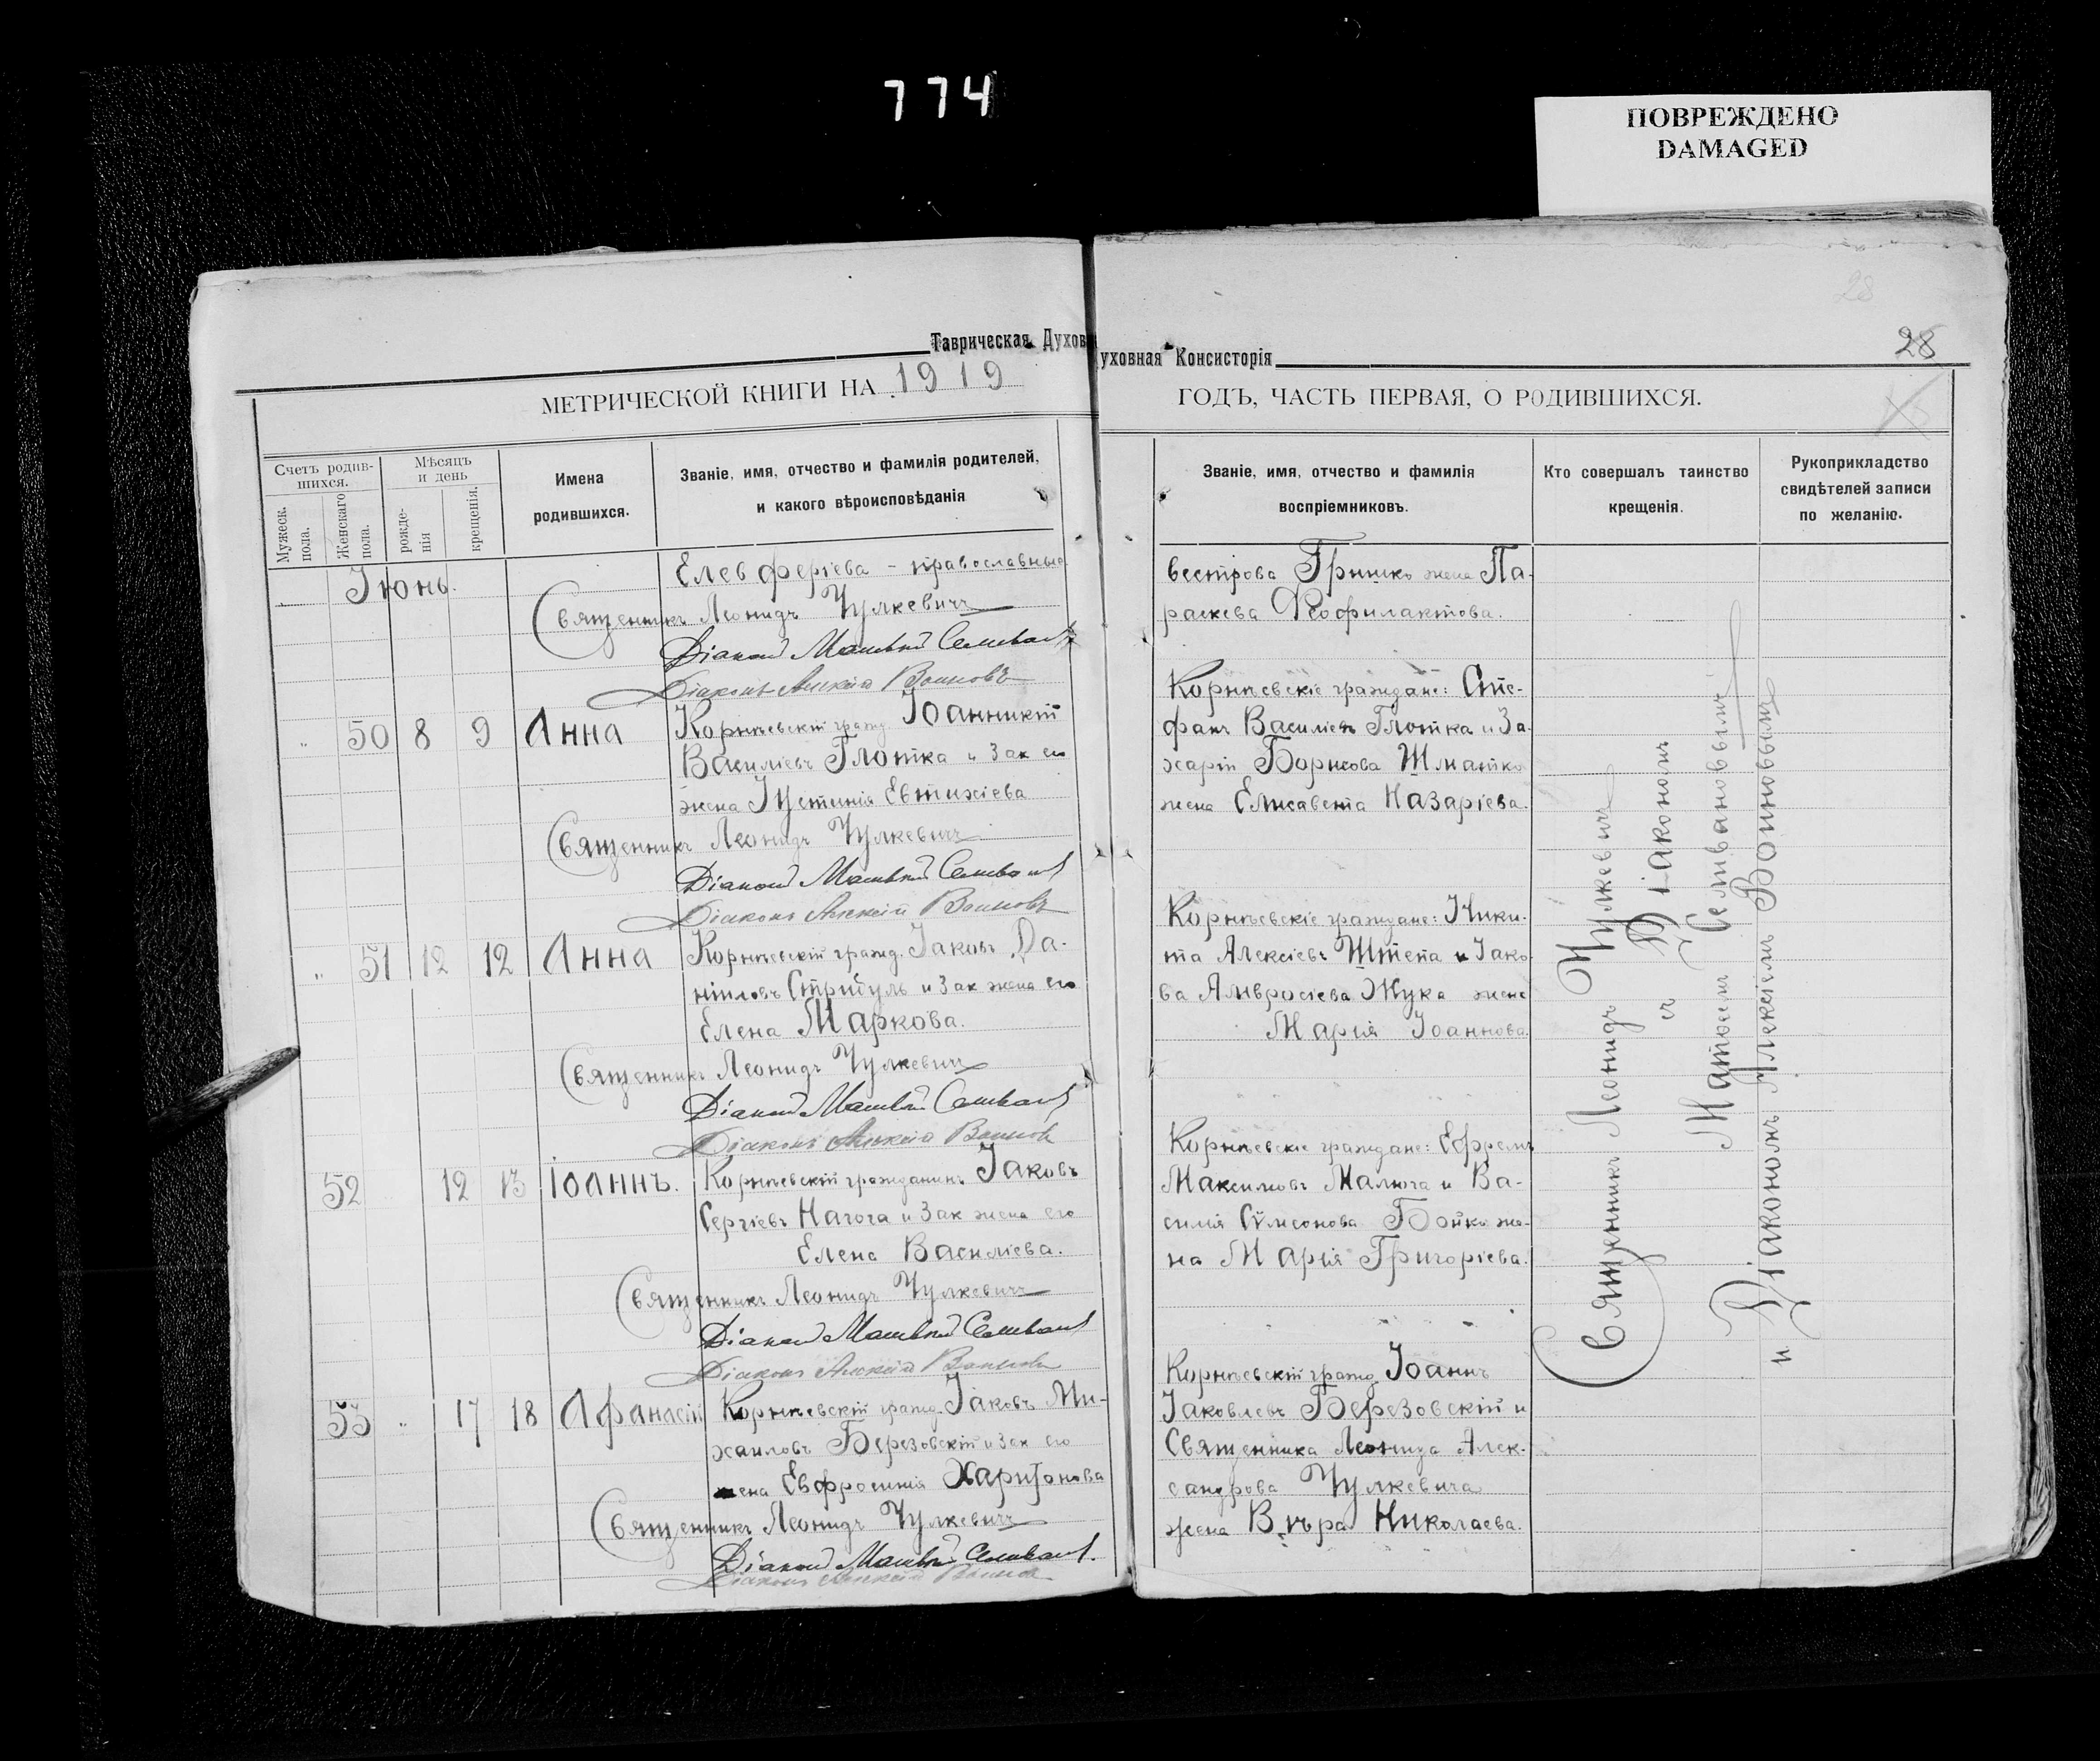 774
ПОВРЕЖДЕНО
DAMAGED
28
28
Таврическая Духов
уховная Консисторія
МЕТРИЧЕСКОЙ КНИГИ НА 1919
ГОДЪ, ЧАСТЬ ПЕРВАЯ, О РОДИВШИХСЯ.
Счетъ родив-
шихся.
Мужеск.
пола.
Женскаго
пола.
Мѣсяцъ
и день
рожде-
нія
крещенія.
Имена
родившихся.
Званіе, имя, отчество и фамилія родителей,
и какого вѣроисповѣданія
Званіе, имя, отчество и фамилія
воспріемниковъ.
Кто совершалъ таинство
крещенія.
Рукоприкладство
свидѣтелей записи
по желанію.
Іюнь.
Елевферіева - православные
Священникъ Леонидъ Чулкевичъ
Діаконъ Матвѣй Селивановъ
Діаконъ Алексій Воиновъ
вестрова Гришко жена Па-
раскева Феофилактова.
" 50 8 9 Анна
Корнѣевскій гражд. Іоанникій
Василіевъ Глотка и Зак его
жена Іустинія Евтихіева
Священникъ Леонидъ Чулкевичъ
Діаконъ Матвѣй Селивановъ
Діаконъ Алексій Воиновъ
Корнѣевскіе граждане: Сте-
фанъ Василіевъ Глотка и За-
харія Борисова Шматко
жена Елисавета Назаріева.
" 51 12 12 Анна
Корнѣевскій гражд. Іаковъ Да-
ніиловъ Стрибуль и Зак жена его
Елена Маркова.
Священникъ Леонидъ Чулкевичъ
Діаконъ Матвѣй Селивановъ
Діаконъ Алексій Воиновъ
Корнѣевскіе граждане: Ники-
та Алексіевъ Штепа и Іако-
ва Амвросіева Жука жена
Марія Іоаннова.
52 12 13 Іоаннъ.
Корнѣевскій гражданинъ Іаковъ
Сергіевъ Нагога и Зак жена его
Елена Василіева.
Священникъ Леонидъ Чулкевичъ
Діаконъ Матвѣй Селивановъ
Діаконъ Алексій Воиновъ
Корнѣевскіе граждане: Ефремъ
Максимовъ Малюга и Ва-
силія Сѵмеонова Бойко же-
на Марія Григоріева.
53 " 17 18 Афанасій
Корнѣевскій гражд. Іаковъ Ми-
хаиловъ Березовскій и Зак его
жена Евфросинія Харитонова
Священникъ Леонидъ Чулкевичъ
Діаконъ Матвѣй Селивановъ.
Діаконъ Алексій Воиновъ
Корнѣевскій гражд. Іоаннъ
Іаковлевъ Березовскій и
Священника Леонида Алек-
сандрова Чулкевича
жена Вѣра Николаева.
Священникъ Леонидъ Чулкевичъ
съ Діакономъ
Матѳеемъ Селивановымъ
и Діакономъ Алексіемъ Воиновымъ